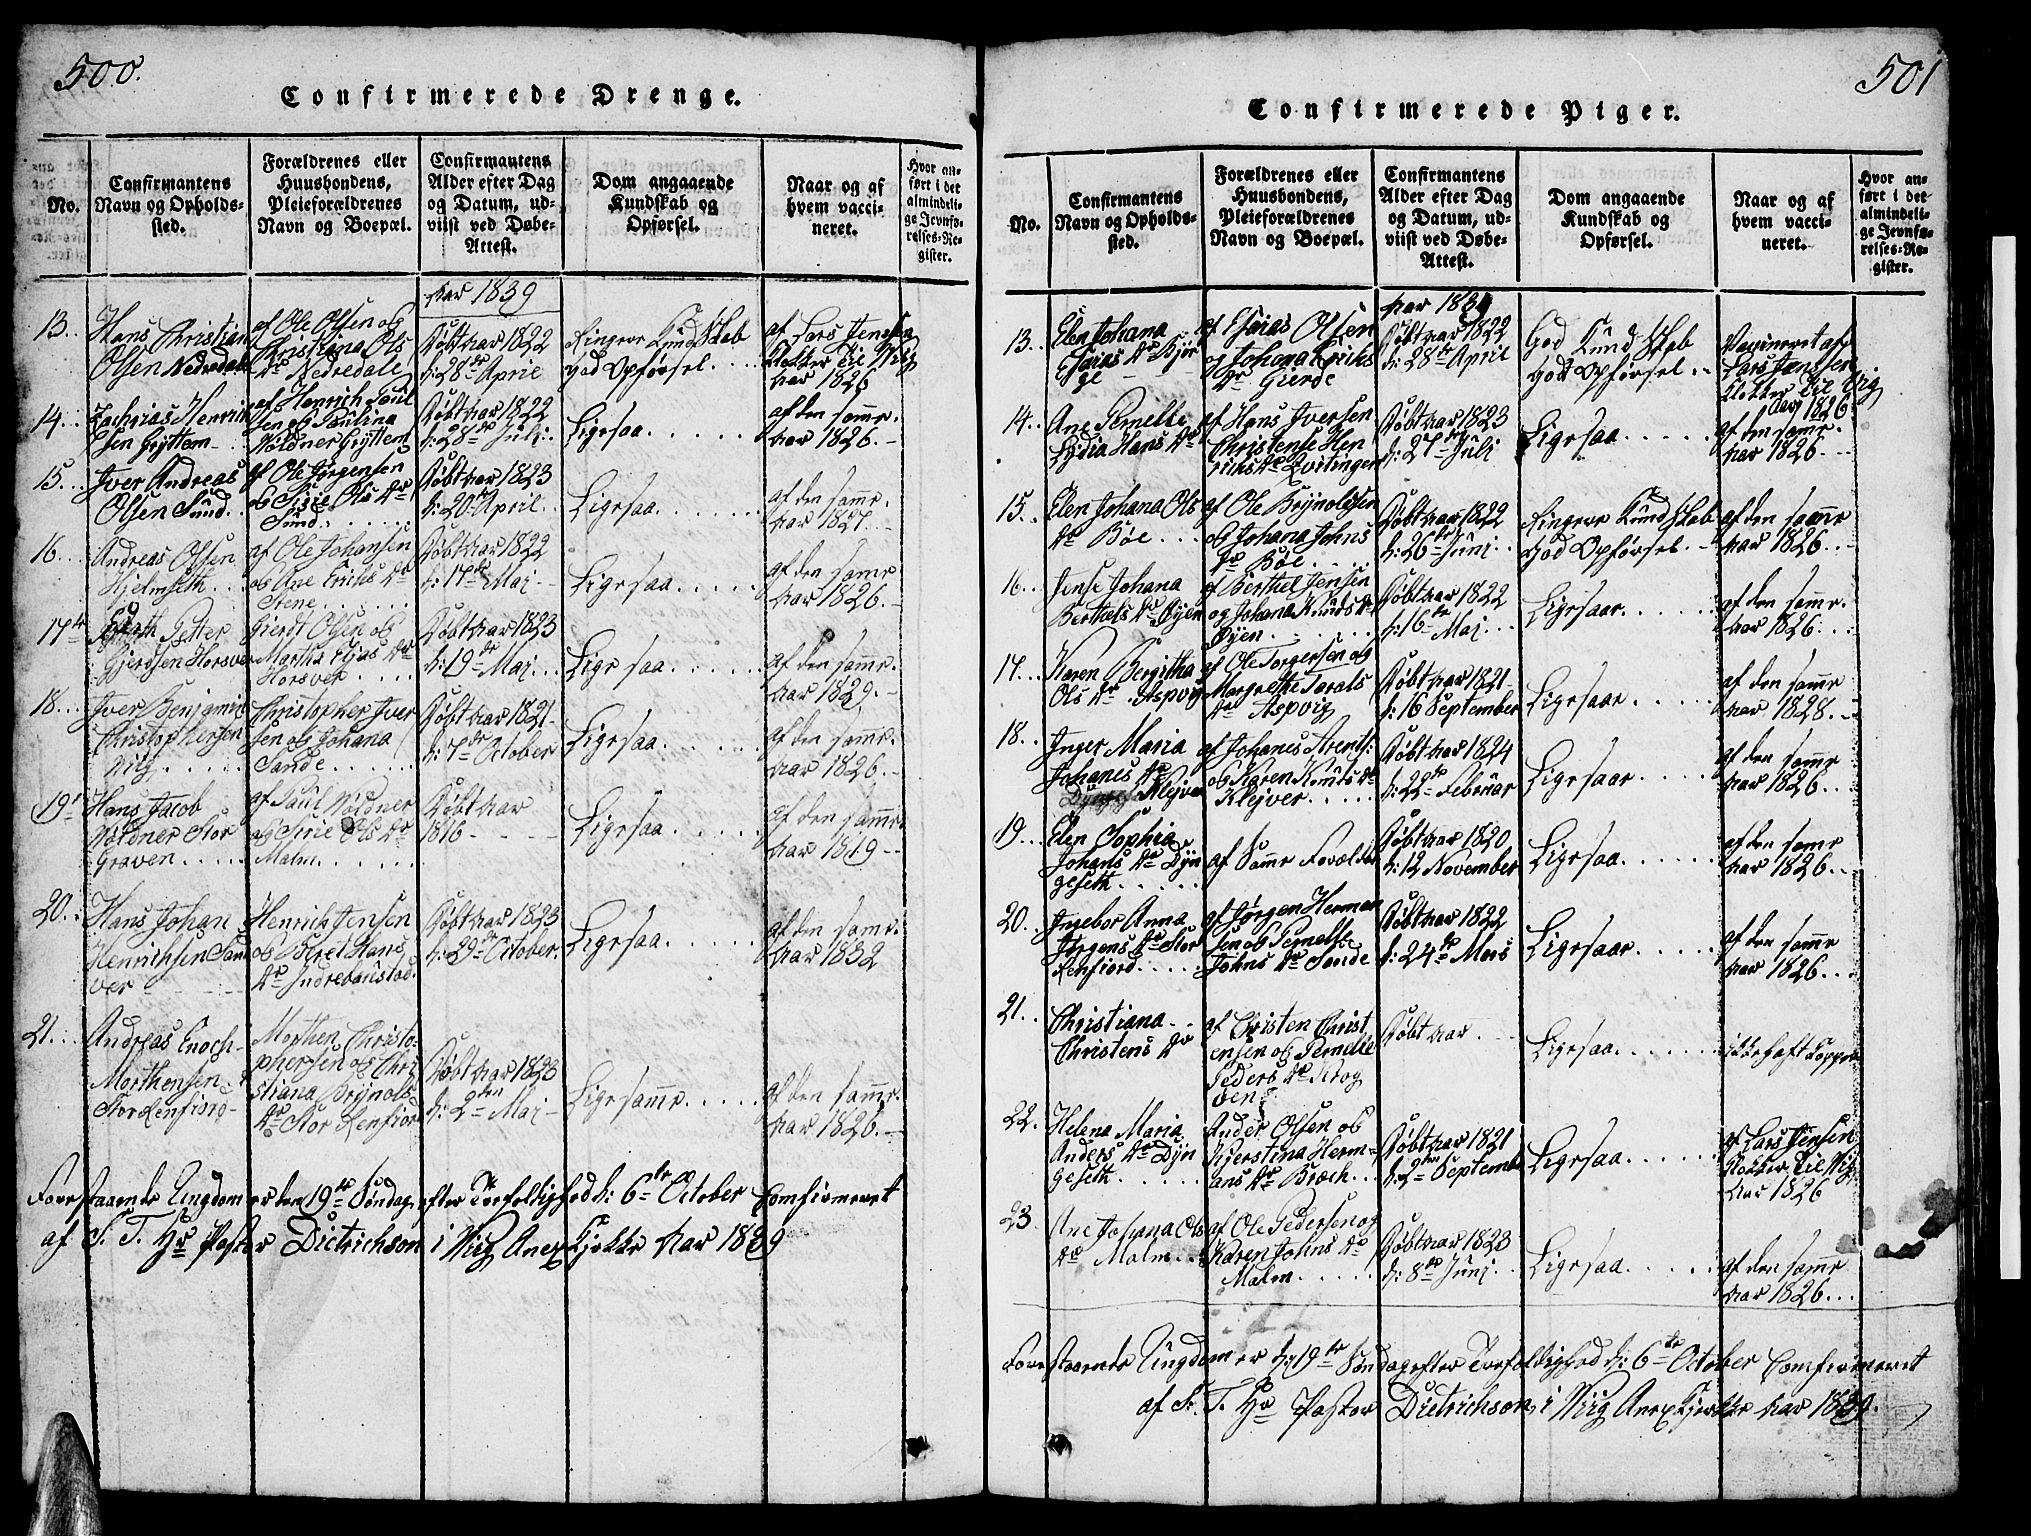 500.
Confirmerede Drenge.
No.
Confirmantens
Navn og Opholds-
sted.
Forældrenes eller
Huusbondens,
Pleieforældrenes
Navn og Boepæl.
Confirmantens
Alder efter Dag
og Datum, ud-
viist ved Døbe-
Attest.
Dom angaaende
Kundskab og
Opførsel.
Naar og af
hvem vacci-
neret.
Hvor an-
ført i det
almindeli-
ge Jevnfø-
relses-Re-
gister.
Aar 1839
13..
Hans Christian
Olsen Nedredale
af Ole Olsen og
Christiina Ols
Dr Nedredale
Døbt Aar 1822
d: 28de April
Ringere Kundskab
god Opførsel...
af Lars Jensen
Klokker til Veøy
Aar 1826
14..
Zacharias Henrik
sen Gyttem
af Henrich Paul
sen og Paulina
Noldner Gyttem
Døbt Aar 1822
d: 28de Juli
Ligesaa.....
af den samme.
Aar 1826.-
15...
Iver Andreas
Olsen Sund.
af Ole Jørgensen
og Sirie Ols Dr
Sund......
Døbt Aar 1823
d: 20de April..
Ligesaa.....
af den samme.
Aar 1827.-
16...
Andreas Olsen
Hjelmseth..
af Ole Johansen
og Ane Erichs Dr
Stene......
Døbt Aar 1822
d: 17de Maj..
Ligesaa.....
af den samme
Aar 1826.-
17
Petter
Gjerdsen Horsver
Gierdt Olsen og
Martha Elias Dr
Horsver....
Døbt Aar 1823
d: 19de Maj...
Ligesaa.....
af den samme.
Aar 1829.-
18...
Iver Benjamin
Christophersen
Vilg.....
Christopher Iver
sen og Johana
Sande.....
Døbt Aar 1821
d: 7de October
Ligesaa.....
af den samme.
Aar 1826.-
19
Hans Jacob
Noldner Stor
Graven.....
af Paul Noldner
og Sirie Ols Dr
Malm......
Døbt Aar
1816
Ligesaa.....
af den samme.
Aar 1819--
20..
Hans Johan
Henrichsen San
ver
Henrich Jensen
og Beret Hans
Dr Indrevanstad
Døbt Aar 1823
d: 29de October.
Ligesaa.....
af den samme.
Aar 1832
21...
Andreas Enoch
Morthensen
StorLensiord-
Morthen Christo-
phersen og Chri
stiana Brynols
Dr Stor Lensiord
Døbt Aar 1823
d: 2den Maj-
Ligesaa......
af den samme.
Aar 1826.-
Forestaaende Ungdom er den 19de Søndag efter Trefoldighed d: 6te October Comfirmeret
af S. T. Hr Pastor Dietrichson i Vug Anex Kjerke Aar 1839
501
Confirmerede Piger.
No.
Confirmantens
Navn og Opholds-
sted.
Forældrenes eller
Huusbondens,
Pleieforældrenes
Navn og Boepæl.
Confirmantens
Alder efter Dag
og Datum, ud-
viist ved Døbe-
Attest.
Dom angaaende
Kundskab og
Opførsel.
Naar og af
hvem vacci-
neret.
Hvor an-
ført i det
almindeli-
ge Jevnfø-
relses-Re-
gister.
Aar 1839
13..
Elen Johana
Esaias Dr Bjør
ge
af Esaias Olsen
og Johana Erichs
Dr Gierde
Døbt Aar 1822
d: 28de April
God Kundskab
god Opførsel..
Vaccineret af
Lars Jenssen
Klokker til Vug
Aar 1826
14...
Ane Pernelle
Lydia Hans Dr
af Hans Iversen
Christense Hen
richs Dr Qvitingen
Døbt Aar 1823
d: 27de Juli
Ligesaa.....
af den samme.
Aar 1826.-
15...
Elen Johana Ols
Dr Böe...
af Ole Brynolsen
og Johana Johns
Dr Böe....
Døbt Aar 1822
d: 26de Juni..
Ringere Kundskab
god Opførsel..
af den samme
Aar 1826..-
16...
Jense Johana
Berthels Dr Øyen
af Berthel Jensen
og Johana Knuds Dr
Øyen......
Døbt Aar 1822
d: 16de Maj...
Ligesaa......
af den samme.
Aar 1826...
17...
Karen Bergitha
Ols Dr Aspvig
af Ole Torgersen og
Margrethe Tarals
Dr Aspvig
Døbt Aar 1821
d: 16 September
Ligesaa.....
af den samme
Aar 1828..-
18...
Inger Maria
Johanes Dr
Klejver
af Johanes Arents:
og Karen Knuds Dr
Klejver.....
Døbt Aar 1824
d: 22de Februar
Ligesaa.....
af den samme
Aar 1826...
19...
Elen Sophia
Johans Dr Dyn
geseth......
af Samme Forælder
Døbt Aar 1820
d: 12 November
Ligesaa.....
af den samme
Aar 1826...
20.
Ingebor Anna
Jørgens Dr Stor
Lensiord.....
af Jørgen Herman
sen og Pernelle
Johns Dr Sande
Døbt Aar 1822
d: 24de Mars
Ligesaa.....
af den samme
Aar 1826...
21...
Christiana..
Christens Dr
af Cristen Christ
ensen og Pernelie
Peders Dr Krog
ven
Døbt Aar..
Ligesaa.....
ikke haft Kopper
22..
Helena Maria
Anders Dr Dyn
geseth.....
Ander Olsen og
Kjerstina Herm-
ans Dr Broch...
Døbt Aar 1821
d: 2den Septemb
Ligesaa.....
af Lars Jensen
Klokker til Vug
Aar 1826
23
Ane Johana Ols
Dr Malm..
af Ole Pedersen og
Karen Johns Dr
Malm.....
Døbt Aar 1823
d: 8de Juni..
Ligesaa.....
af den samme
Aar 1826...
Forestaaende Ungdom er d: 19de Søndag efter Trefoldighed d: 6te October Comfirmeret
af S. T. Hr Pastor Dietrichson i Vug Anex Kjerke Aar 1839.